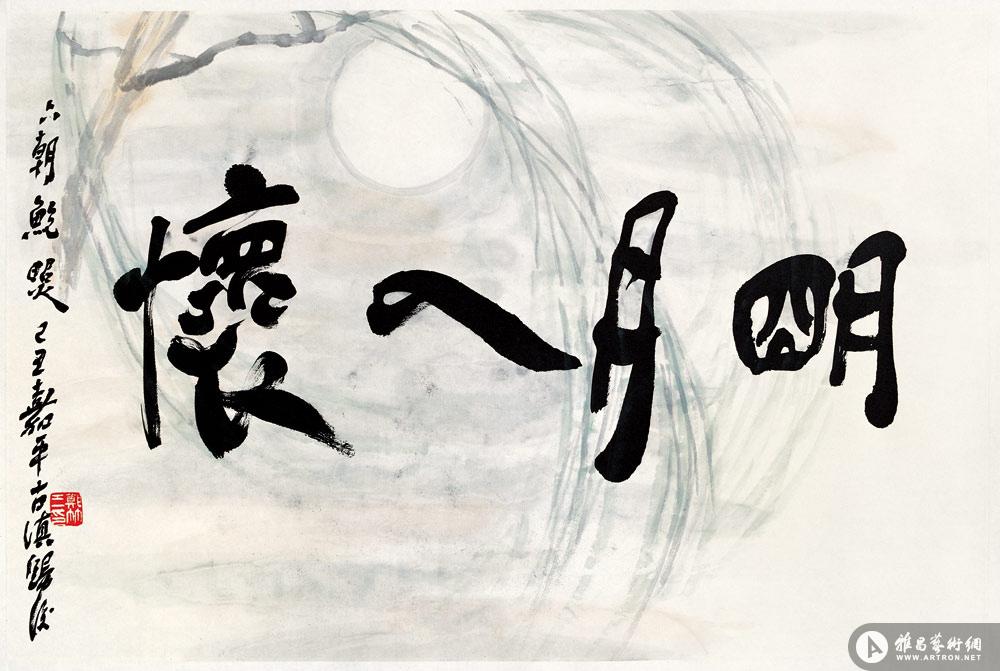 明月入懷
六朝鮑照己丑嘉平古滇
雅昌藝術網
WWW.ARTRON.NET